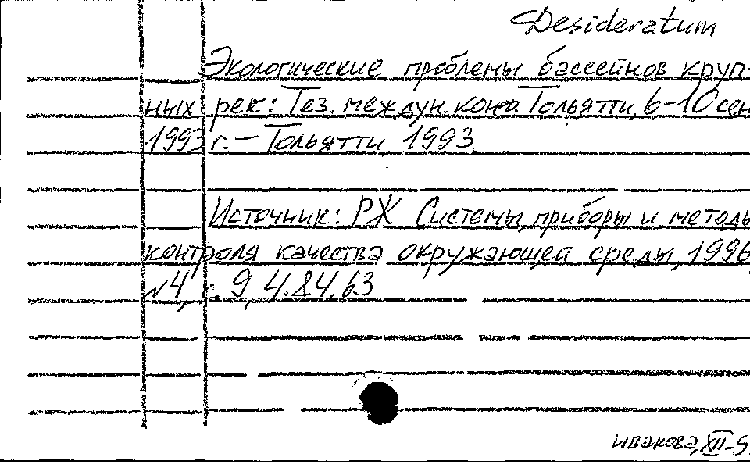 Desideratum
Экологические проблемы бассейнов круп-
ных рек: Тез. междун. конф. Тольятти, 6-10 сен
1993 г. – Тольятти, 1993
Источник: РЖ Системы, приборы и методы
контроля качества окружающей среды, 1996
N4, с. 9, 4.84.63
Иванова, XII-9